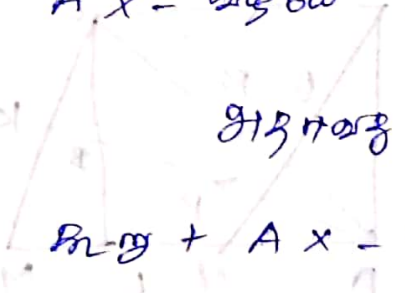 A x -
அதாவது
கூற்று + A x -